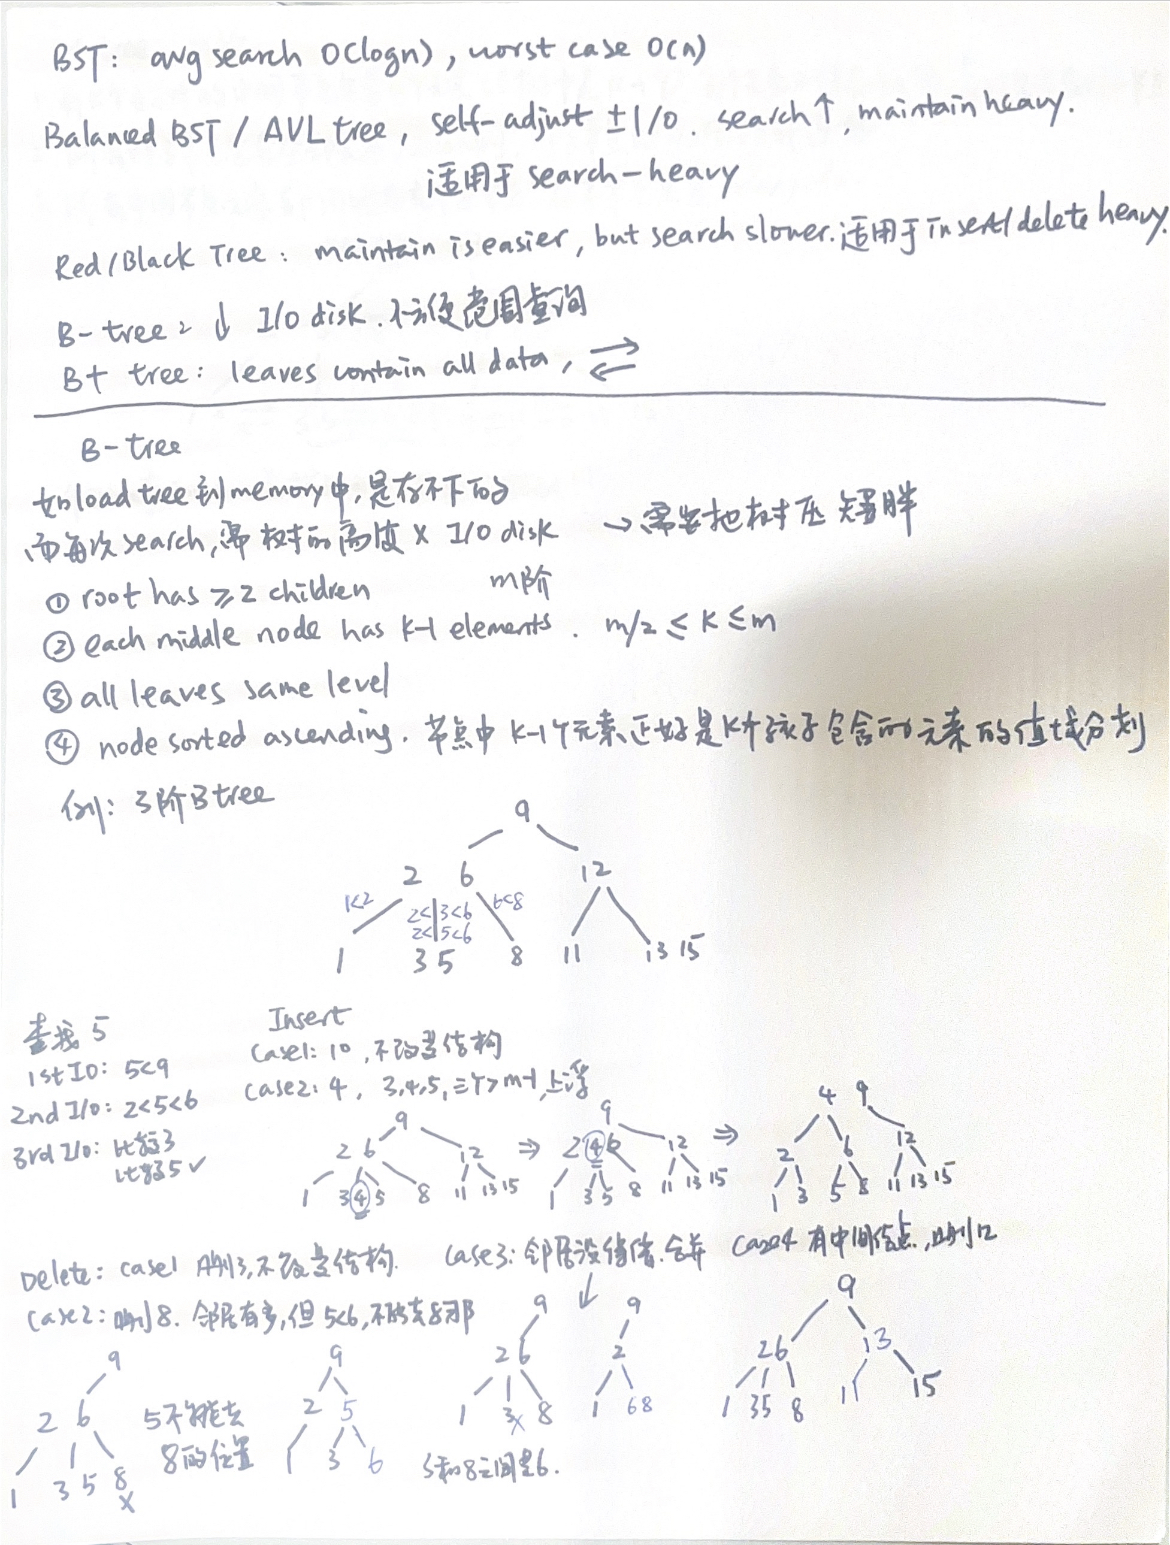 BST: avg search O(logn), worst case O(n)
Balanced BST / AVL tree, self-adjust ±1/0. search↑, maintain heavy.
适用于 search-heavy
Red/Black Tree: maintain is easier, but search slower. 适用于 insert/delete heavy.
B-tree: ↓ I/O disk. 不方便范围查询
B+ tree: leaves contain all data, ⇌
B-tree
如load tree到memory中,是存不下的
而每次search,需 树的高度 × I/O disk → 需要把树压矮胖
① root has ≥2 children m阶
② each middle node has k-1 elements. m/2 ≤ k ≤ m
③ all leaves same level
④ node sorted ascending. 节点中 k-1个元素正好是k个孩子包含的元素的值域分划
例: 3阶B tree
9
2 6 12
1<2 2< 3<6 6<8
2< 5<6
1 3 5 8 11 13 15
查找 5
1st IO: 5<9
2nd I/O: 2<5<6
3rd I/O: 比较3
比较5 ✓
Insert
Case1: 10, 不改变结构
Case2: 4, 3,4,5, 三个>m-1,上浮
9
2 6 12
1 3 4 5 8 11 13 15
⇒
9
2 4 6 12
1 3 5 8 11 13 15
⇒
4 9
2 6 12
1 3 5 8 11 13 15
Delete: case1 删13,不改变结构. Case3: 邻居没得借.合并 Case4 有中间结点,删12
Case2: 删8. 邻居有多,但5<6,不能去8那
9
2 6
1 3 5 8
x
5不能去
8的位置
9
2 5
1 3 6
9
2 6
1 3x 8
3和8之间是6.
9
2
1 6 8
9
2 6 13
1 3 5 8 11 15